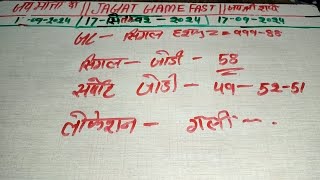 जय माता दी || JAGAT GAME FAST || जय श्री राधे
1-09-2024 || 17-सितम्बर-2024 || 17-09-2024
सिंगल हरूफ = 999-88
सिंगल - जोडी - 58
सपोर्ट जोडी - 49-52-51
लोकेशन - गली